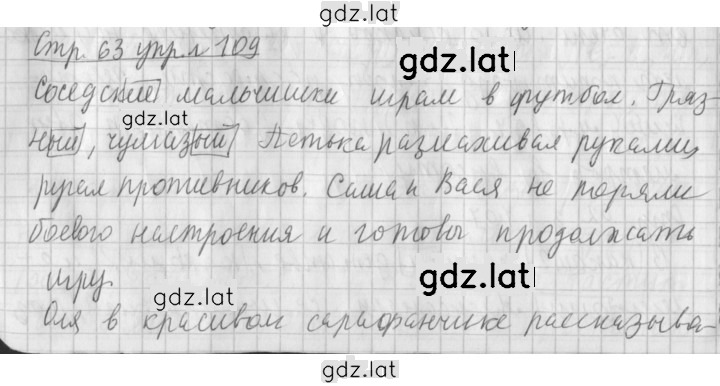 gdz.lat
Стр. 63 упр. 109
gdz.lat
Соседские мальчишки играли в футбол. Гряз-
gdz.lat
ный, чумазый Петька размахивая руками,
ругал противников. Саша и Вася не теряли
боевого настроения и готовы продолжать
gdz.lat
игру.
gdz.lat
Оля в красивом сарафанчике рассказыва-
gdz.lat